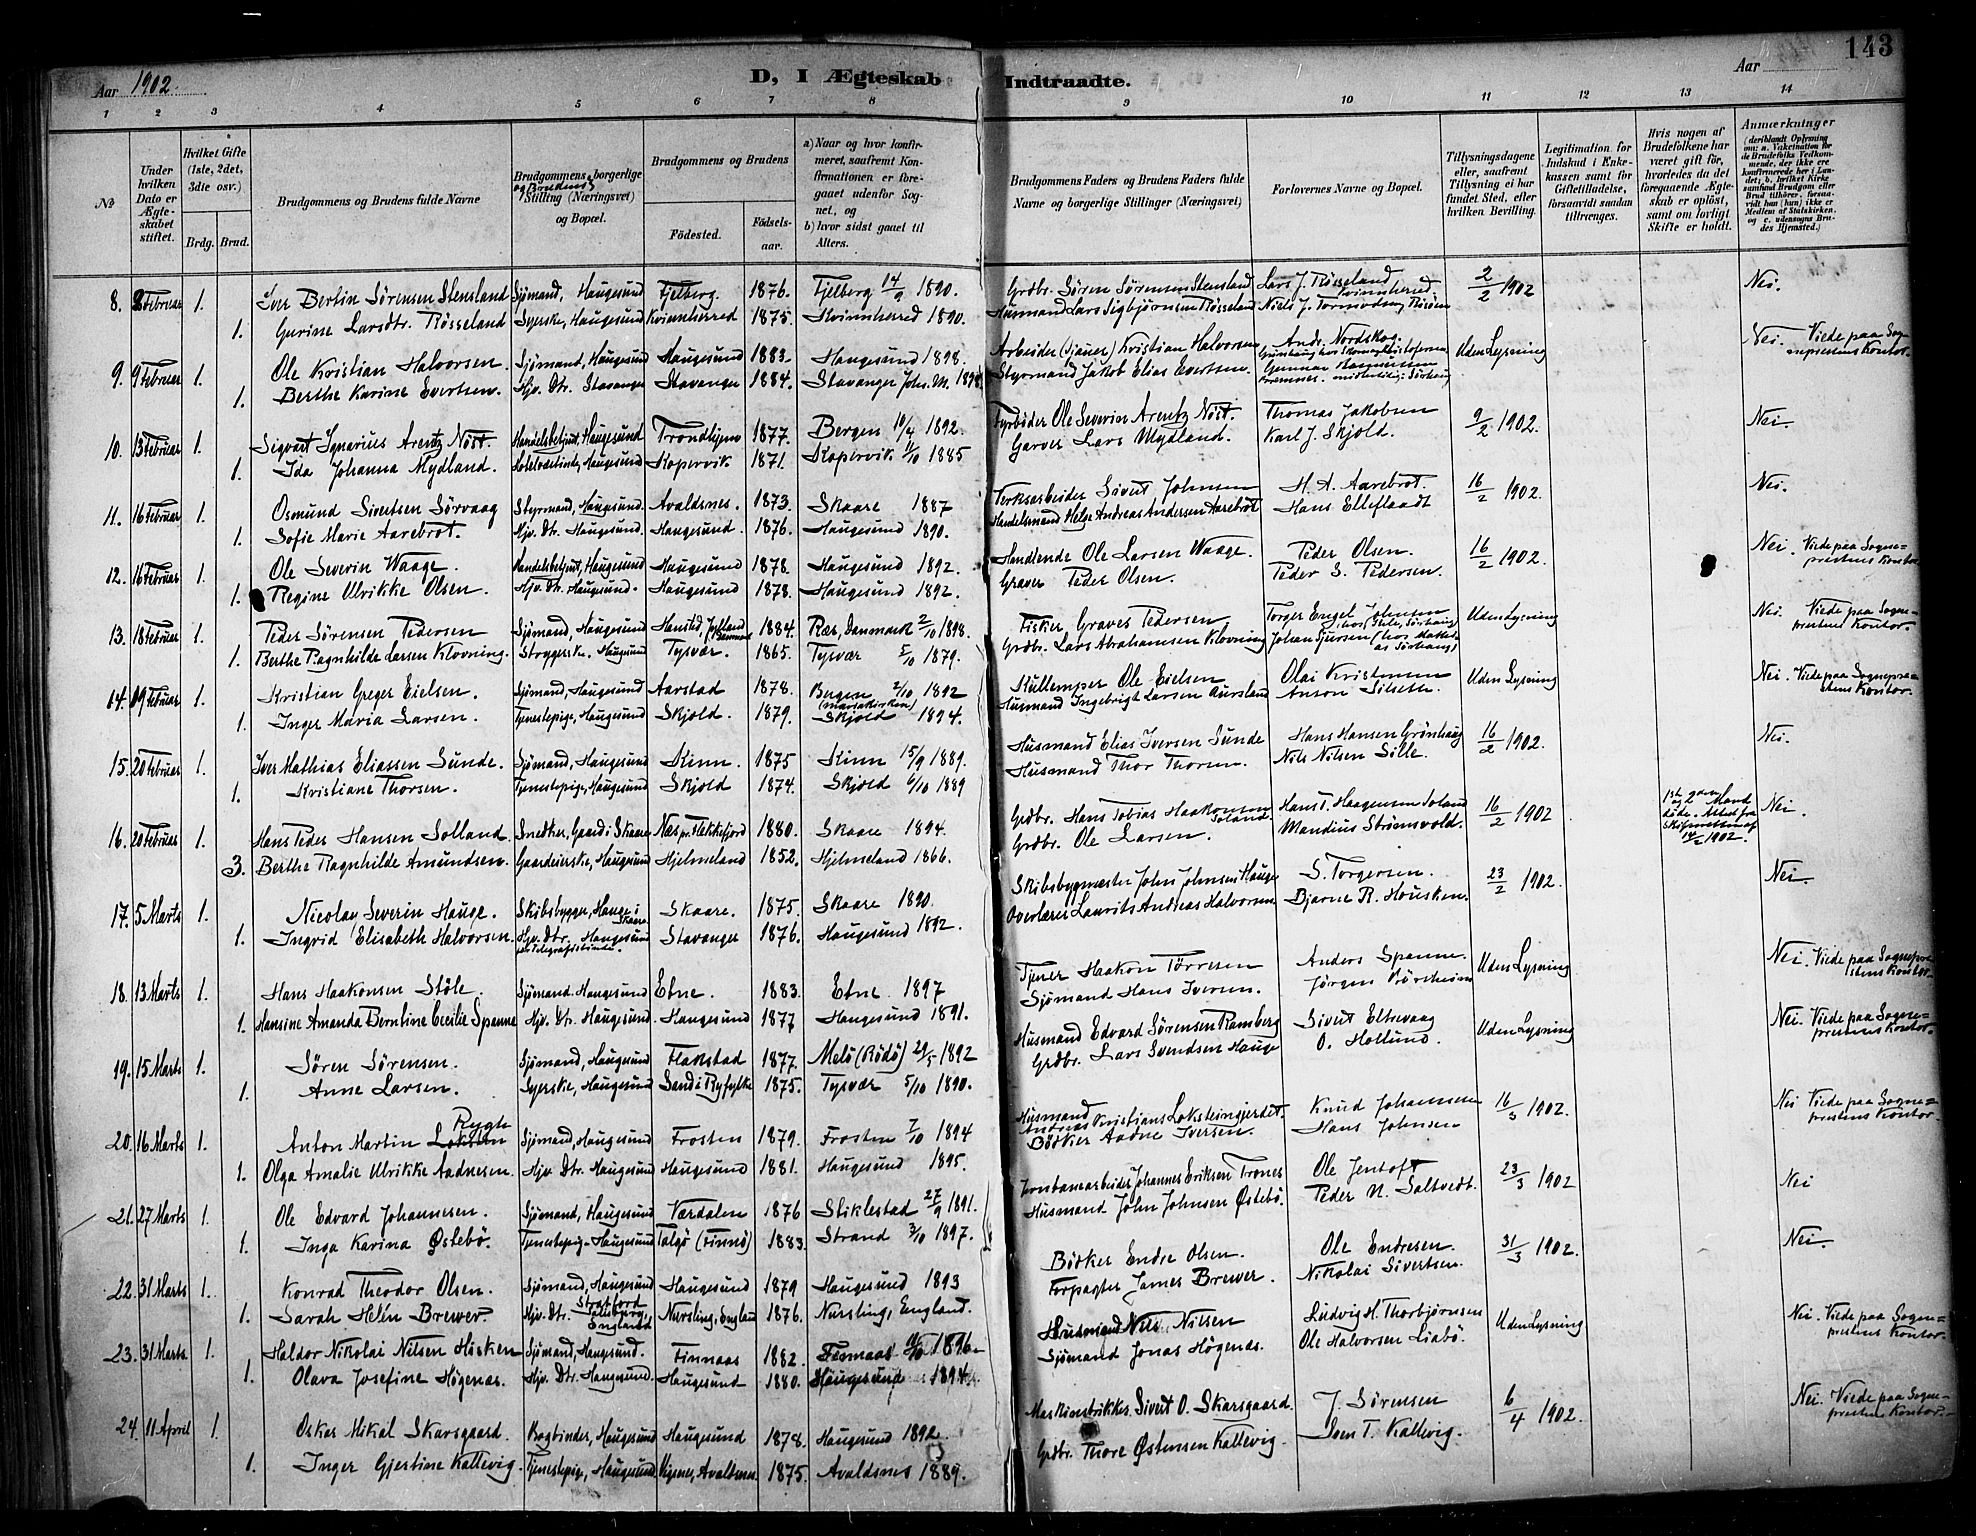 Aar 1902.
D, I Ægteskab Indtraadte.
Aar
143
1 2 3 4 5 6 7 8 9 10 11 12 13 14
№
Under hvilken Dato er Ægteskabet stiftet.
Hvilket Gifte (1ste, 2det, 3die osv.)
Brdg. Brud.
Brudgommens og Brudens fulde Navne
Brudgommens og Brudens borgerlige Stilling (Næringsvei) og Bopæl.
Brudgommens og Brudens
Födested.
Födselsaar.
a) Naar og hvor konfirmeret, saafremt Konfirmationen er foregaaet udenfor Sognet, og
b) hvor sidst gaaet til Alters.
Brudgommens Faders og Brudens Faders fulde Navne og borgerlige Stillinger (Næringsvei)
Forlovernes Navne og Bopæl.
Tillysningsdagene eller, saafremt Tillysning ei har fundet Sted, efter hvilken Bevilling.
Legitimation for Indskud i Enkekassen samt for Giftetilladelse, forsaavidt saadan tiltrænges.
Hvis nogen af Brudefolkene har været gift för, hvorledes da det foregaaende Ægteskab er oplöst, samt om lovligt Skifte er holdt.
Anmærkninger (deriblandt Oplysning om: a. Vakcination for de Brudefolks Vedkommende, der ikke ere konfirmerede her i Landet; b. hvilket Kirkesamfund Brudgom eller Brud tilhörer, forsaavidt han (hun) ikke er Medlem af Statskirken, og c. udensogns Brudes Hjemsted.)
8. 8 Februar 1. Iver Bertin Sørensen Stensland Sjömand, Haugesund Fjelberg. 1876. Fjelberg 14/9 1890. Grdbr. Søren Sørensen Stensland Lars J. Røsseland Kvinnherred. 2/2 1902 Nei.
1. Gurine Larsdtr. Røsseland Syerske, Haugesund Kvinnherred 1875. Kvinnherred 1890. Husmand Lars Sigbjørnsen Røsseland Niels J. Tormodsen,
9. 9 Februar 1. Ole Kristian Halvorsen. Sjömand, Haugesund Haugesund 1883. Haugesund 1898. Arbeider (Sjauer) Kristian Halvorsen Andr. Nordskog Uden Lysning Nei. Viede paa Sogneprestens Kontor.
1. Berthe Karine Evertsen. Hjv. Dtr. Stavanger Stavanger 1884. Stavanger Joh. M. 1898 Styrmand Jakob Elias Evertsen. Gunnar Rasmussen
10. 13 Februar 1. Sigvart Ignarius Arentz Nöst. Handelsbetjent, Haugesund Trondhjem 1877. Bergen 10/4 1892. Fyrböder Ole Severin Arentz Nöst. Thomas Jakobsen 9/2 1902. Nei.
1. Ida Johanna Mydland. Haugesund Kopervik 1871. Kopervik 11/10 1885 Garver Lars Mydland. Karl J. Skjold.
11. 16 Februar 1. Osmund Sivertsen Sörvaag Styrmand, Haugesund. Avaldsnes. 1873. Skaare 1887 Verksarbeider Sivert Johnsen H. A. Aarebrot. 16/2 1902. Nei.
1. Sofie Marie Aarebrot. Hjv. Dtr. Haugesund. Haugesund. 1876. Haugesund 1890. Handelsmand Helge Andreas Andersen Aarebrot Hans Elleflaadt
12. 16 Februar 1. Ole Severin Waage. Handelsbetjent, Haugesund Haugesund 1878. Haugesund 1892. Handlende Ole Larsen Waage. Peder Olsen. 16/2 1902. Nei. Viede paa Sogneprestens Kontor
1. Regine Ulrikke Olsen. Hjv. Dtr. Haugesund. Haugesund 1878. Haugesund 1892. Graver Peder Olsen. Peder S. Pedersen.
13. 18 Februar 1. Peder Sörensen Pedersen Sjömand, Haugesund Hansted, Jylland Danmark 1884. Rær, Danmark 2/10 1898. Fisker, Graves Pedersen Torger Engel Johnsen Uden Lysning Nei. Viede paa Sogneprestens Kontor.
1. Berthe Ragnhilde Larsen Klovning. Strygerske, Haugesund Tysvær. 1865. Tysvær 5/10 1879. Grdbr. Lars Abrahamsen Klovning Johan
14. 19 Februar 1. Kristian Greger Eielsen. Sjömand, Haugesund Aarstad 1878. Bergen (Mariakirken) 2/10 1892 Kullemper Ole Eielsen Olai Kristensen Uden Lysning Nei. Viede paa Sogneprestens Kontor.
1. Inger Maria Larsen. Tjenestepige, Haugesund Skjold. 1879. Skjold 1894. Husmand Ingebrigt Larsen Aursland Anton Silseth.
15. 20 Februar 1. Iver Mathias Eliassen Sunde. Sjömand, Haugesund Kinn. 1875 Kinn 15/9 1889. Husmand Elias Iversen Sunde Hans Hansen Grönhaug 16/2 1902. Nei.
1. Kristiane Thorsen. Tjenestepige, Haugesund Skjold 1874. Skjold 6/10 1889 Husmand Thor Thorsen. Nils Nilsen Sille.
16. 20 Februar 1. Hans Peder Hansen Solland. Snedker, Gaard i Skaare Næs pr. Flekkefjord 1880. Skaare 1894. Grdbr. Hans Tobias Haakonsen Soland Hans T. Haagensen Soland 16/2 1902 1ste og 2den Mand döde. Attest fra Skifteretten af 14/2 1902. Nei.
3. Berthe Ragnhilde Amundsen. Gaardeierske, Haugesund Hjelmeland 1852. Hjelmeland 1866. Grdbr. Ole Larsen. Mandius Strömsvold.
17. 5 Marts 1. Nicolay Severin Hauge. Skibsbygger, Hauge i Skaare Skaare. 1875. Skaare 1890. Skibsbygmester John Johnsen Hauge S. Torgersen. 23/2 1902. Nei.
1. Ingrid Elisabeth Halvorsen. Hjv. Dtr. Haugesund Stavanger 1876. Haugesund 1892. Overlærer Laurits Andreas Halvorsen Bjarne R. Housken.
18. 13 Marts 1. Hans Haakonsen Stöle. Sjömand. Haugesund Etne. 1883. Etne. 1897 Tjener Haakon Törresen Anders Spanne. Uden Lysning Nei. Viede paa Sogneprestens Kontor.
1. Hansine Amanda Berntine Cecilie Spanne Hjv. Dtr. Haugesund. Haugesund 1877 Haugesund 1891. Sjömand Hans Iversen. Jörgen
19. 15 Marts 1. Sören Sörensen. Sjömand, Haugesund Flakstad 1877. Melö (Rödö) 29/5 1892 Husmand Edvard Sörensen Ramberg Sivert Eltrevaag Uden Lysning Nei. Viede paa Sogneprestens Kontor.
1. Anne Larsen. Syerske, Haugesund Sand i Ryfylke 1875. Tysvær 5/10 1890. Grdbr. Lars Svendsen Hauge O. Hollund.
20. 16 Marts 1. Anton Martin Lokstein Rygh Sjömand, Haugesund Frosten 1879. Frosten 7/10 1894 Husmand Andreas Kristians Loksteingjerdet. Knud Johannesen 16/3 1902. Nei Viede paa Sogneprestens Kontor.
1. Olga Amalie Ulrikke Aadnesen. Hjv. Dtr. Haugesund Haugesund 1881. Haugesund 1895. Bödker Aadne Iversen. Hans Johnsen
21. 27 Marts 1. Ole Edvard Johannesen. Sjömand, Haugesund Værdalen 1876 Stiklestad 27/9 1891. Johannes Eriksen Trones Ole Jentoft 23/3 1902 Nei
1. Inga Karina Østebö. Tjenestepig. Haugesund Talgö (Finnö) 1883. Strand 3/10 1897. Husmand John Johnsen Østebö. Peder N. Saltvedt.
22. 31 Marts 1. Konrad Theodor Olsen. Sjömand, Haugesund Haugesund 1879 Haugesund 1893 Bödker Endre Olsen. Ole Endresen. 31/3 1902. Nei.
1. Sarah Helen Brewer. Hjv. Dtr. England Nursling, England 1876. Nursling, England. Forpagter James Brewer. Nikolai Sivertsen.
23. 31 Marts 1. Haldor Nikolai Nilsen Hisken Sjömand, Haugesund. Finnaas 1882. Finnaas 1896. Husmand Nils Nilsen Ludvig H. Thorbjörnsen Uden Lysning Nei. Viede paa Sogneprestens Kontor.
1. Olava Josefine Högenas. Hjv. Dtr. Haugesund. Haugesund 1880. Haugesund 1894. Sjömand Jonas Högenas. Ole Halvorsen Liabö.
24. 11 April 1. Oskar Mikal Skarsgaard. Bogbinder, Haugesund Haugesund 1878. Haugesund 1892. Sivert O. Skarsgaard. J. Sörensen 6/4 1902. Nei. Viede paa Sogneprestens Kontor.
1. Inger Gjertine Kallevig. Tjenestepige, Haugesund Avaldsnes 1875. Avaldsnes 1889. Grdbr. Thore Østensen Kallevig. Soen T. Kallevig.